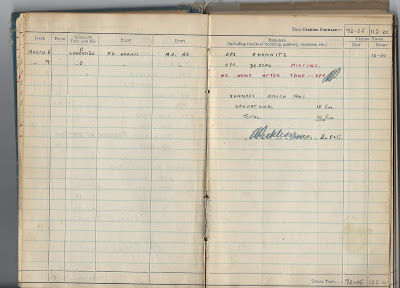 TIME CARRIED FORWARD:— 72·05 112·20
DATE HOUR AIRCRAFT TYPE AND NO. PILOT DUTY REMARKS FLYING TIMES
(including results of bombing, gunnery, exercises, etc.) DAY NIGHT
MARCH 5 LANCASTER F.O. M.U. AG OPS. CHEMNITZ 10·00
" 7 " " " OPS. DESSAU MISSING.
NO NEWS AFTER TAKE-OFF
SUMMARY MARCH 1945
OPERATIONAL 10
TOTAL 10
TOTAL TIME 72·05 122·20